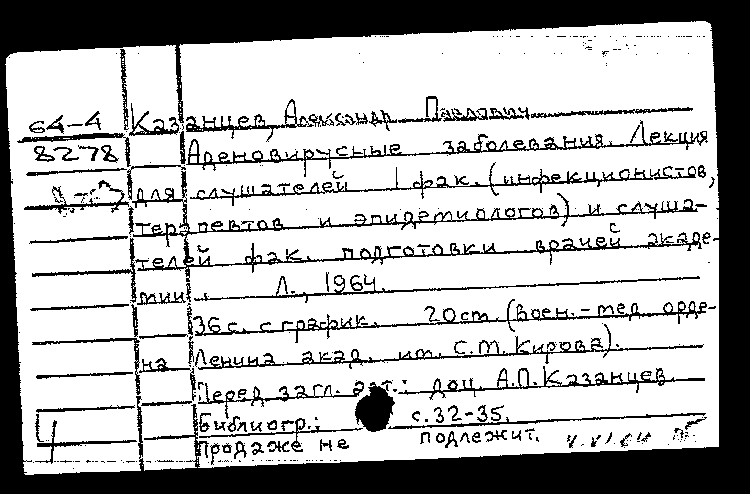 64-4 Казанцев, Александр Павлович
8278 Аденовирусные заболевания. Лекция
для слушателей I фак. (инфекционистов,
терапевтов и эпидемиологов) и слуша-
телей фак. подготовки врачей акаде-
мии. Л., 1964.
36 с. с график. 20 см. (Воен.-мед. орде-
на Ленина акад. им. С.М. Кирова).
Перед загл. авт.: доц. А.П. Казанцев.
Библиогр.: с. 32-35.
Продаже не подлежит.